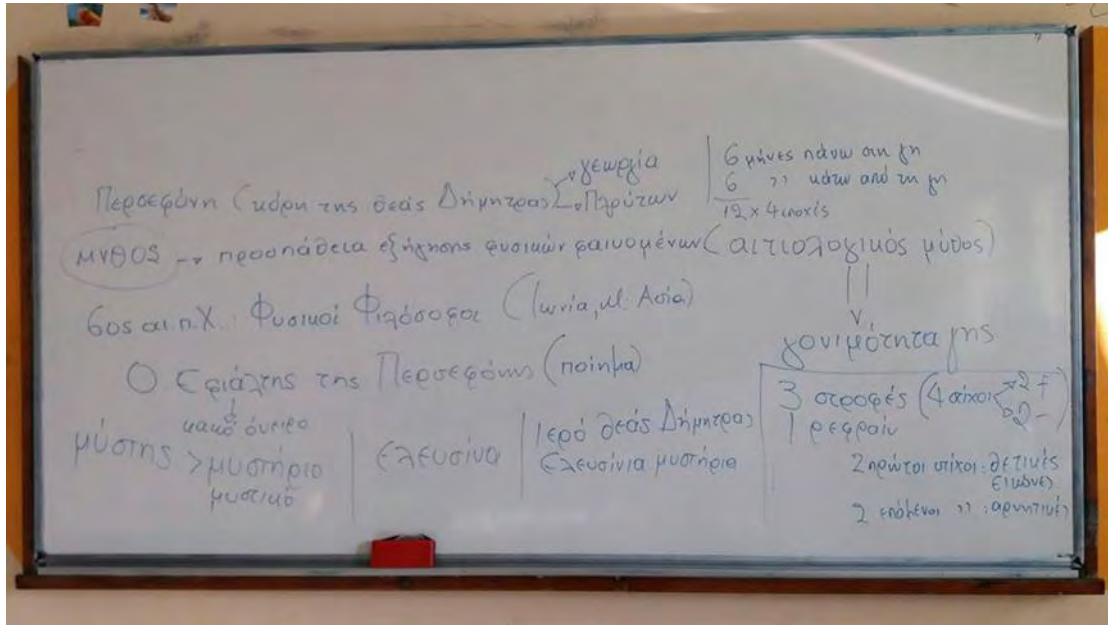 γεωργία
Περσεφόνη (κόρη της θεάς Δήμητρας)
6 μήνες πάνω στη γη
6 ,, κάτω από τη γη
12 x 4 εποχές
ΜΥΘΟΣ → προσπάθεια εξήγησης φυσικών φαινομένων (αιτιολογικός μύθος)
6ος αι. π.Χ. Φυσικοί Φιλόσοφοι (Ιωνία, Μ. Ασία)
γονιμότητα γης
Ο Εφιάλτης της Περσεφόνης (ποίημα)
κακό όνειρο
μύστης > μυστήριο
μυστικό
Ελευσίνα
Ιερό θεάς Δήμητρας
Ελευσίνια μυστήρια
3 στροφές (4 στίχοι 2 + 2 -)
1 ρεφραίν
2 πρώτοι στίχοι: θετικές
εικόνες
2 επόμενοι ,, : αρνητικές